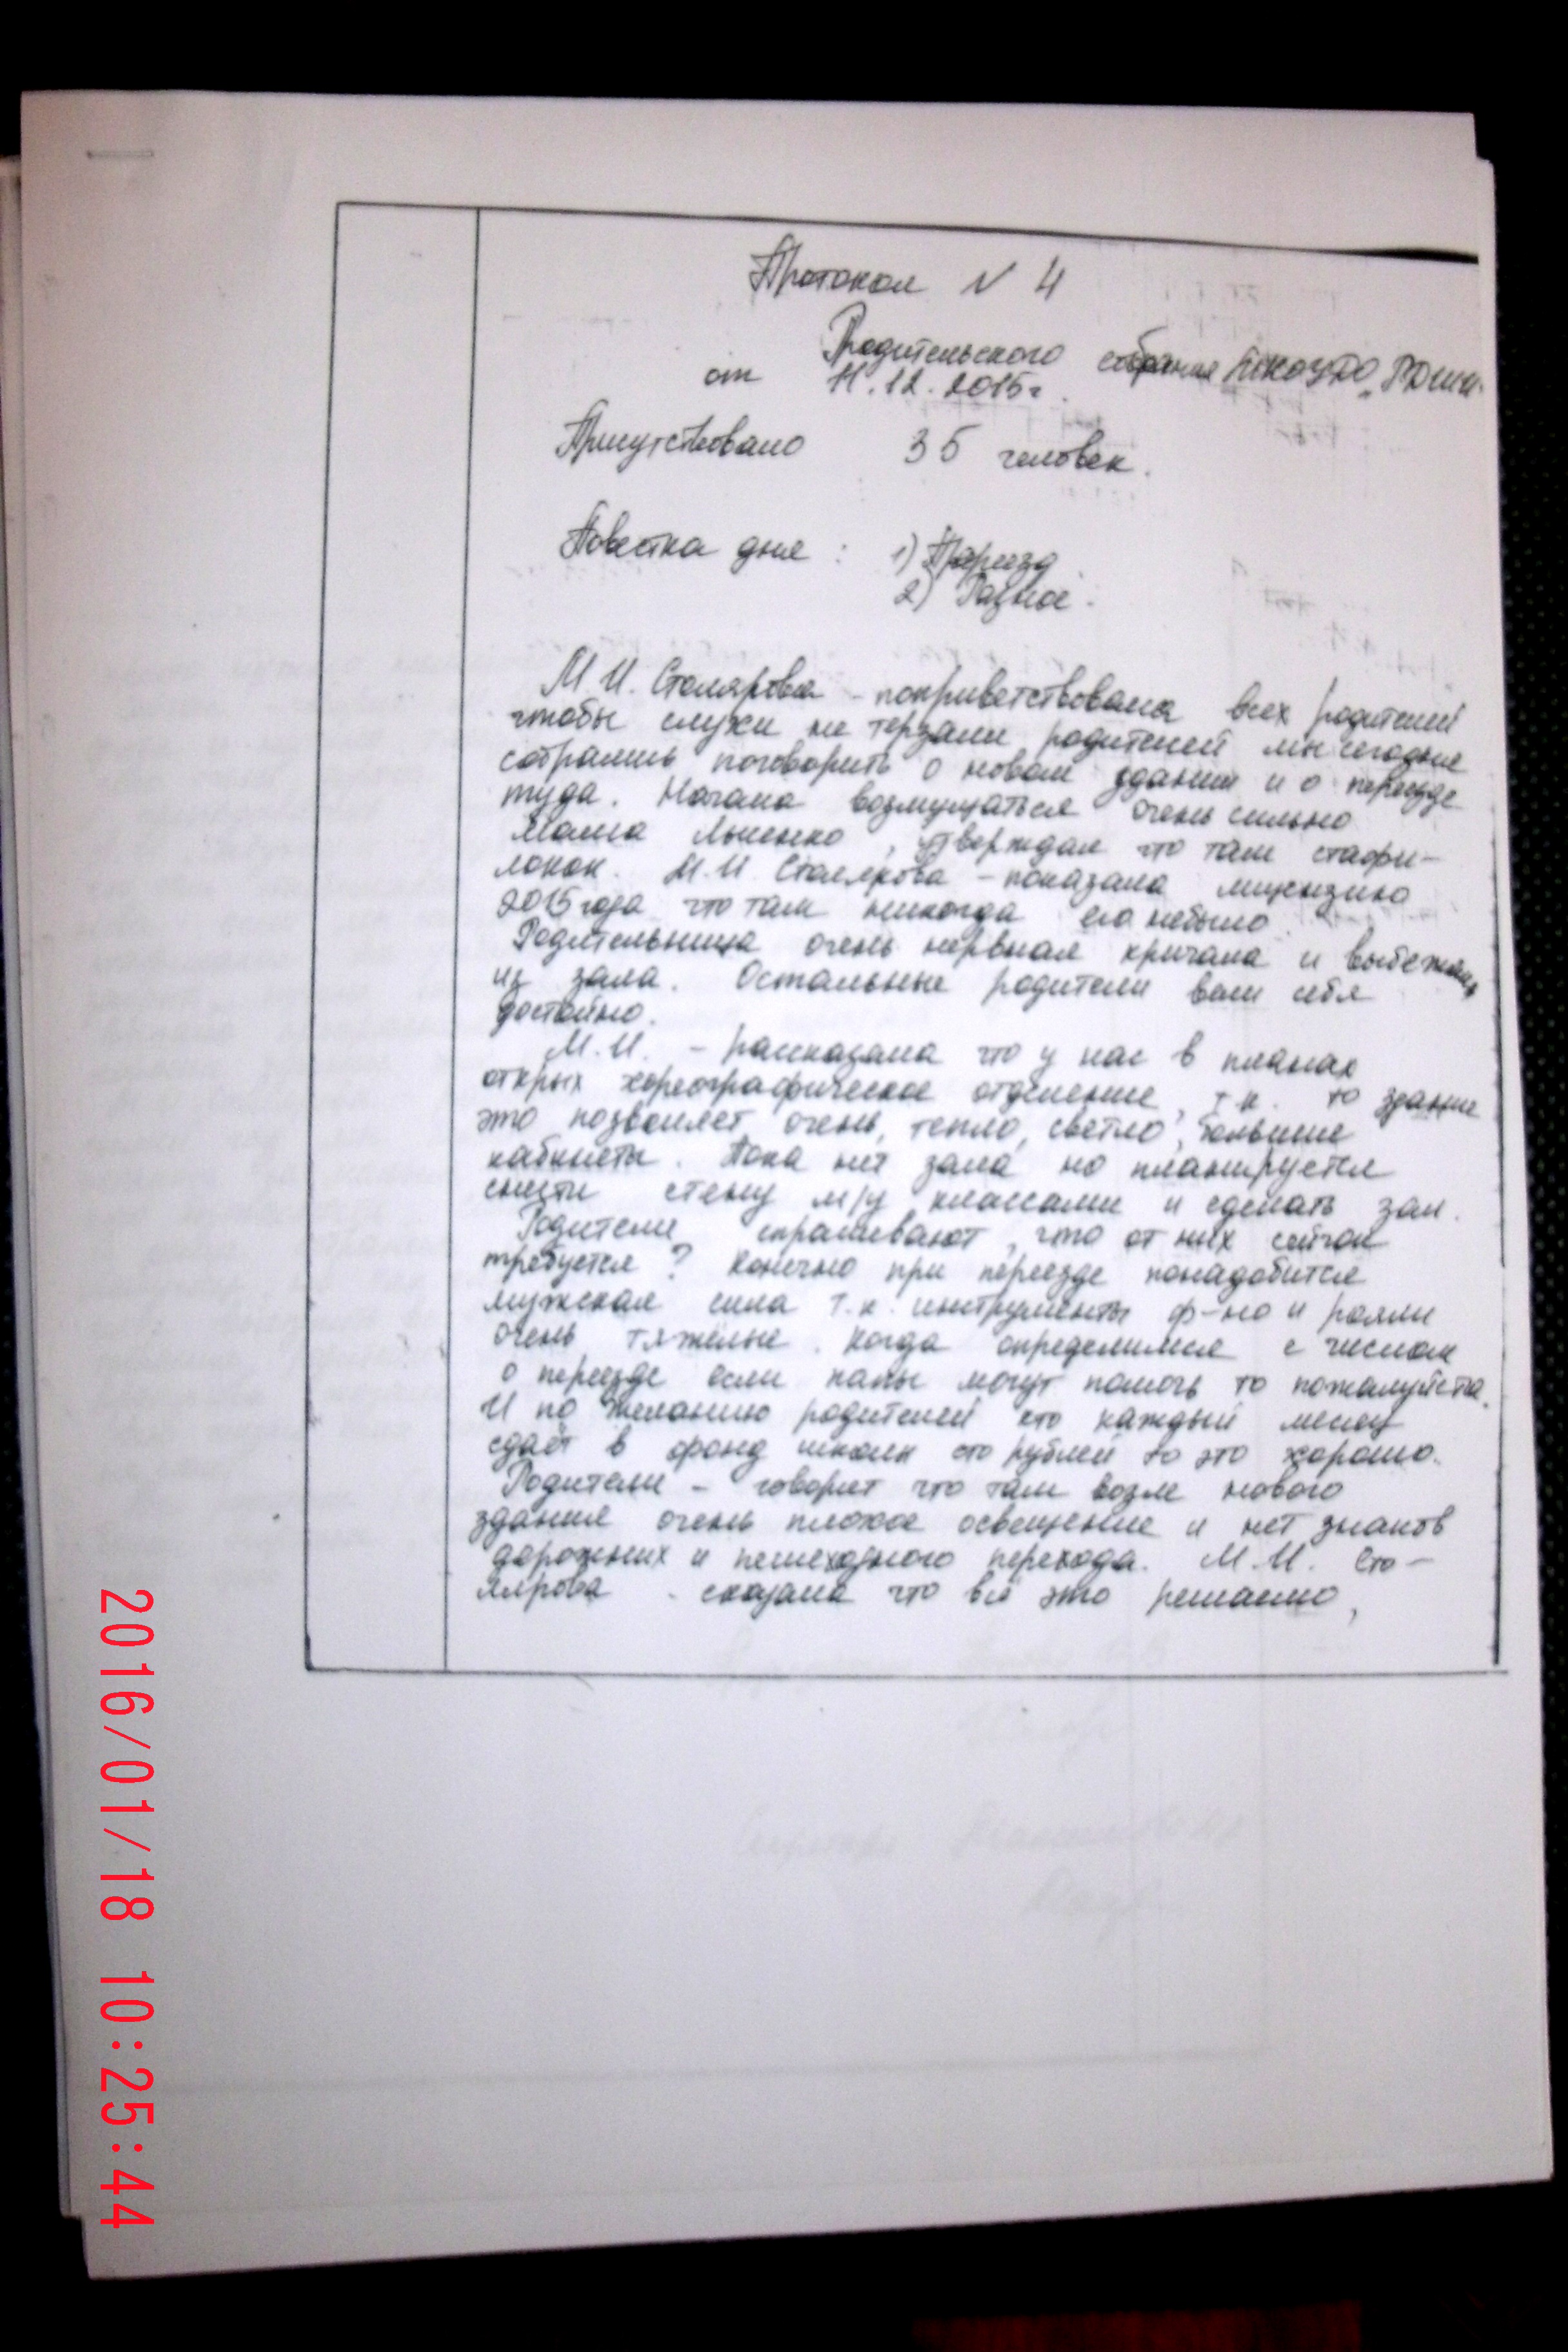 Протокол N 4
Родительского собрания МКОУДО "РДШИ"
от 11.12.2015г.
Присутствовало 35 человек.
Повестка дня : 1) Переезд
2) Разное.
М И. Столярова - поприветствовала всех родителей
чтобы слухи не терзали родителей мы сегодня
собрались поговорить о новом здании и о переезде
туда. Начала возмущаться очень сильно
мама , утверждая что там стафи-
локок. М.И. Столярова - показала лицензию
2015 года что там никогда его небыло
Родительница очень нервная кричала и выбежала
из зала. Остальные родители вели себя
достойно.
М.И. - рассказала что у нас в планах
открых хореографическое отделение, т.к. то здание
это позволяет очень, тепло, светло, большие
кабинеты. Пока нет зала но планируется
снести стену м/у классами и сделать зал.
Родители спрашивают, что от них сейчас
требуется? Конечно при переезде понадобится
мужская сила т.к. инструменты ф-но и рояли
очень тяжёлые. Когда определимся с числом
о переезде если папы могут помочь то пожалуйста.
И по желанию родителей кто каждый месяц
сдаёт в фонд школы сто рублей то это хорошо.
Родители - говорят что там возле нового
здания очень плохое освещение и нет знаков
дорожных и пешеходного перехода. М.И. Сто-
лярова - сказала что всё это решаемо,
2016/01/18 10:25:44